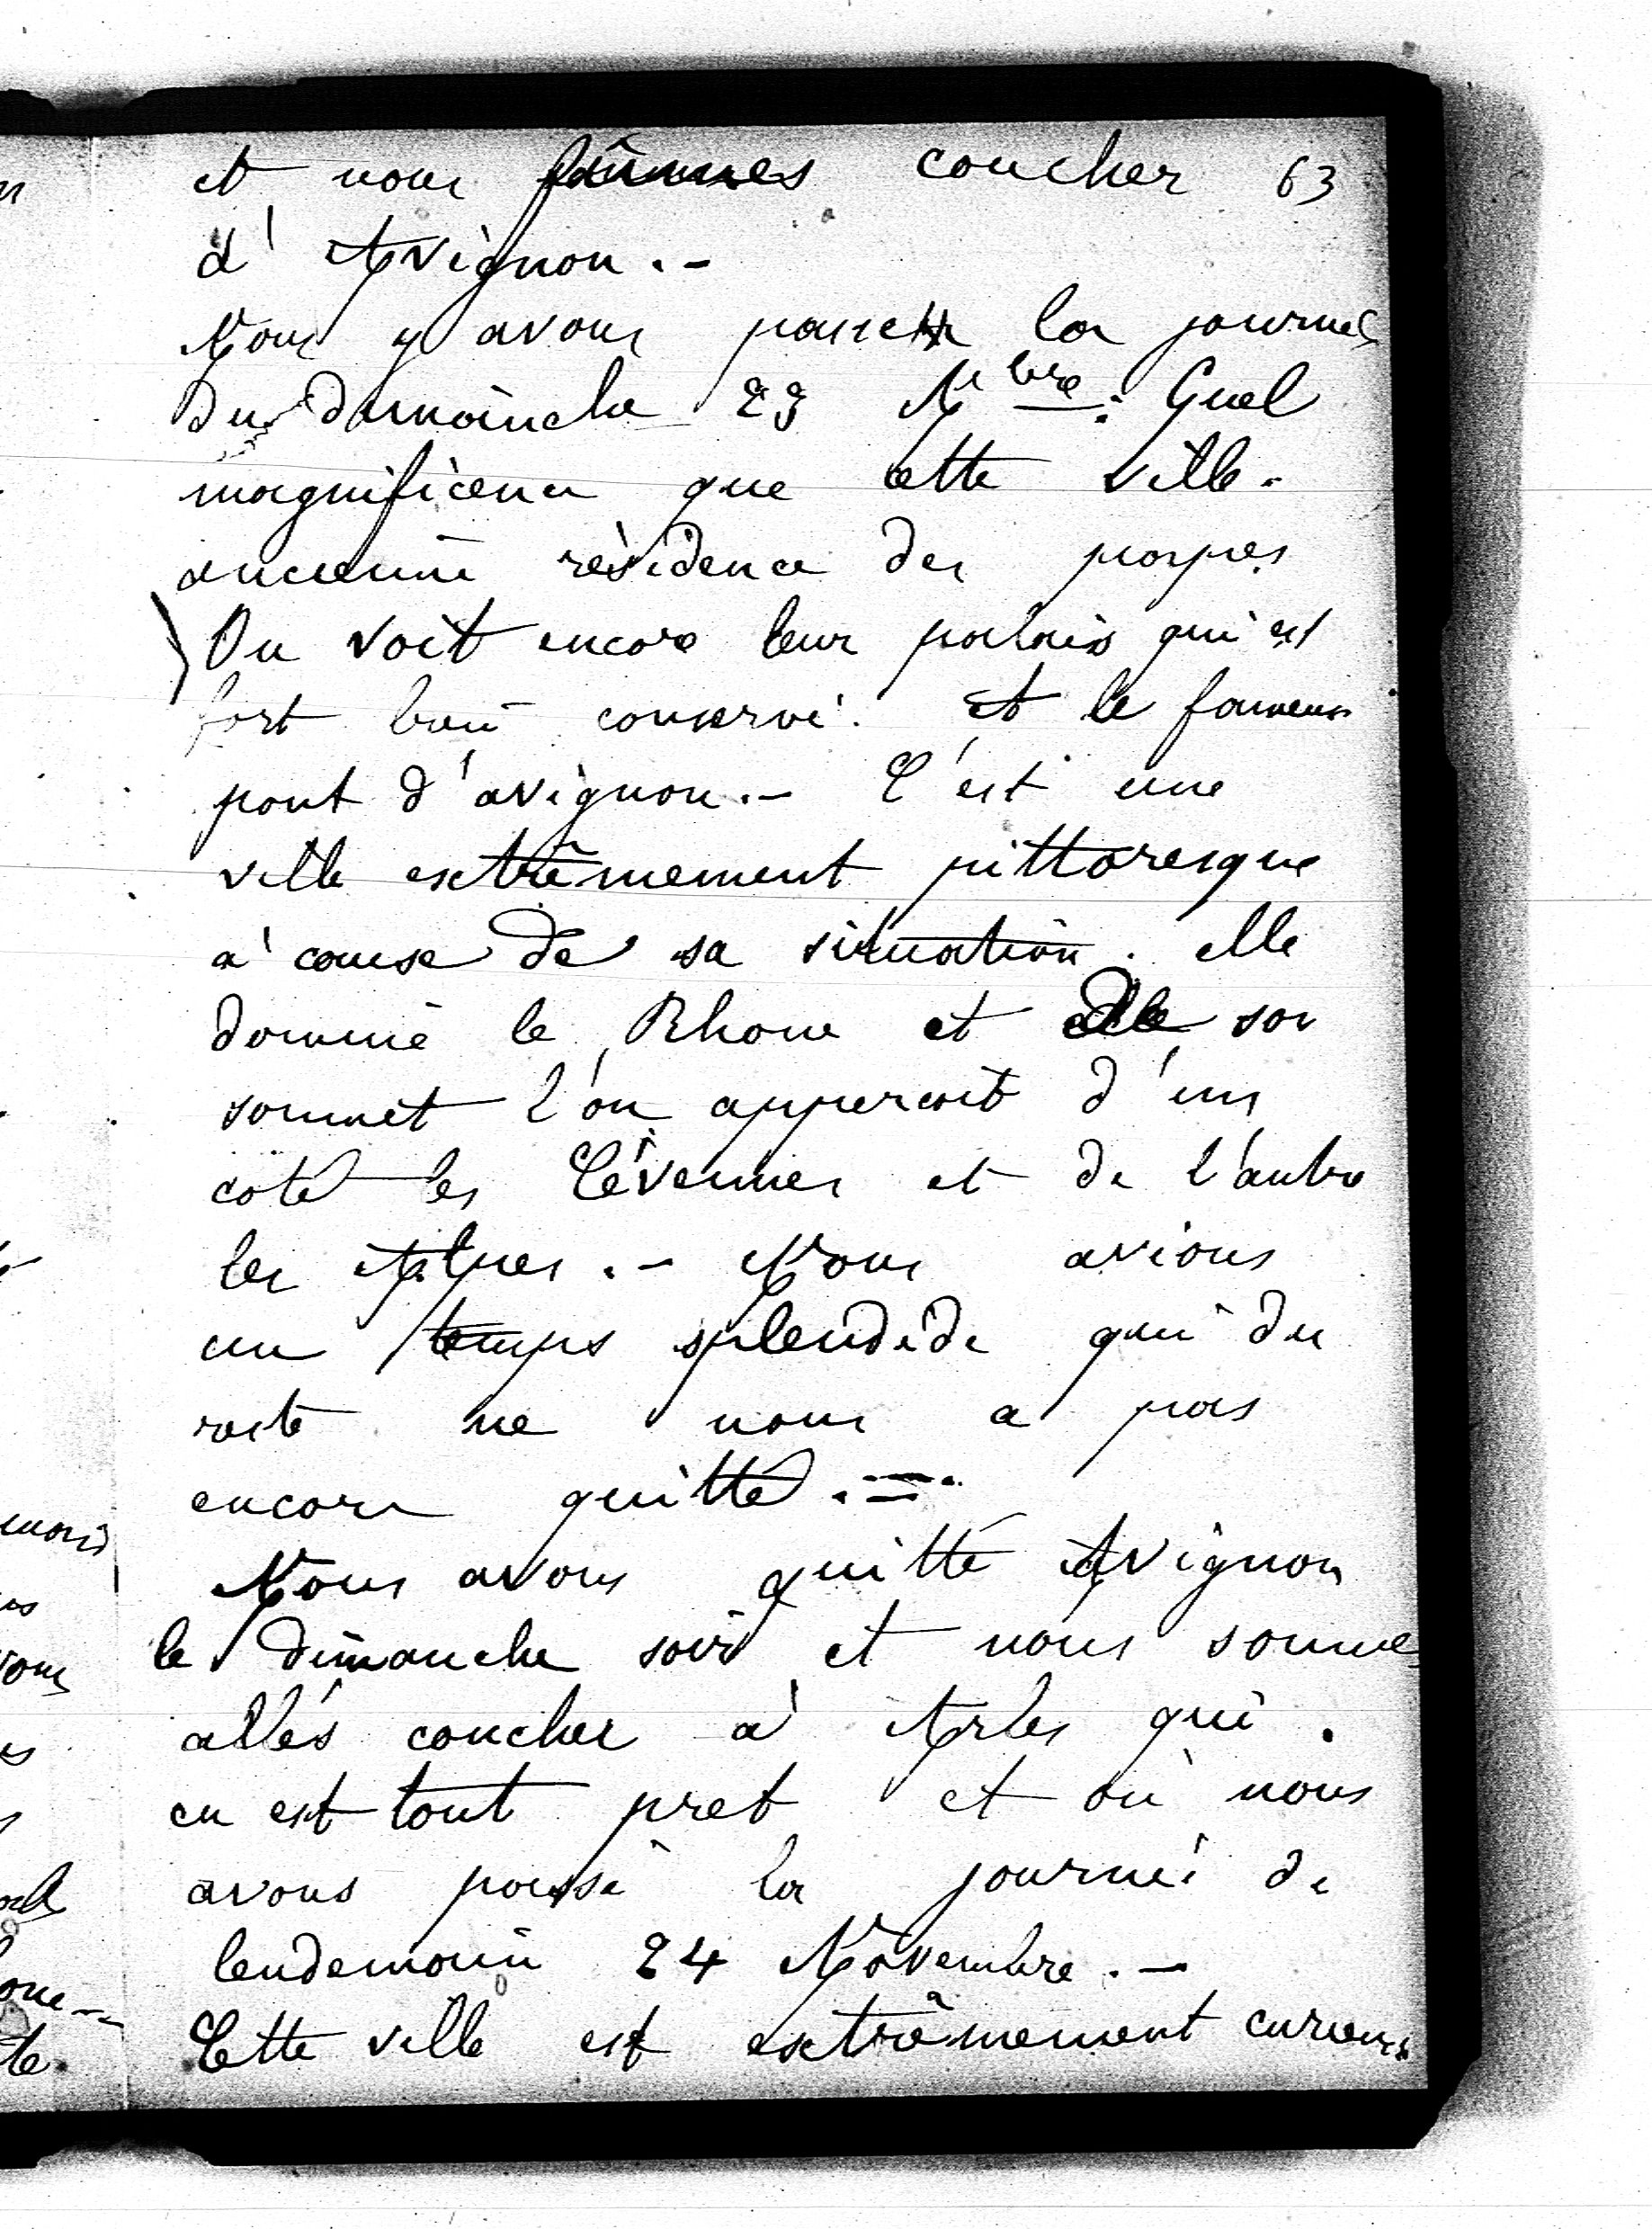 et nous fûmes coucher 63
d'Avignon.-
Nous y avons passer la journée
du dimainche 23 Nbre: Quel
magnificence que cette ville.
ancienne résidence des papes
On voit encore leur palais qui est
fort bien conservé. et le fameux
pont d'avignon.- C'est une
ville extrêmement pittoresque
a' cause de sa situation. elle
domine le Rhone et de son
sommet l'on apperçoit d'un
coté les Cévennes et de l'autre
les Alpes.- Nous avions
un temps splendide qui du
reste ne nous a pas
encore quitté.=
Nous avons quitté Avignon
le dimanche soir et nous sommes
allés coucher à Arles qui.
en est tout pret et où nous
avons passé la journée de
lendemain 24 Novembre.-
Cette ville est extrêmement curieuse